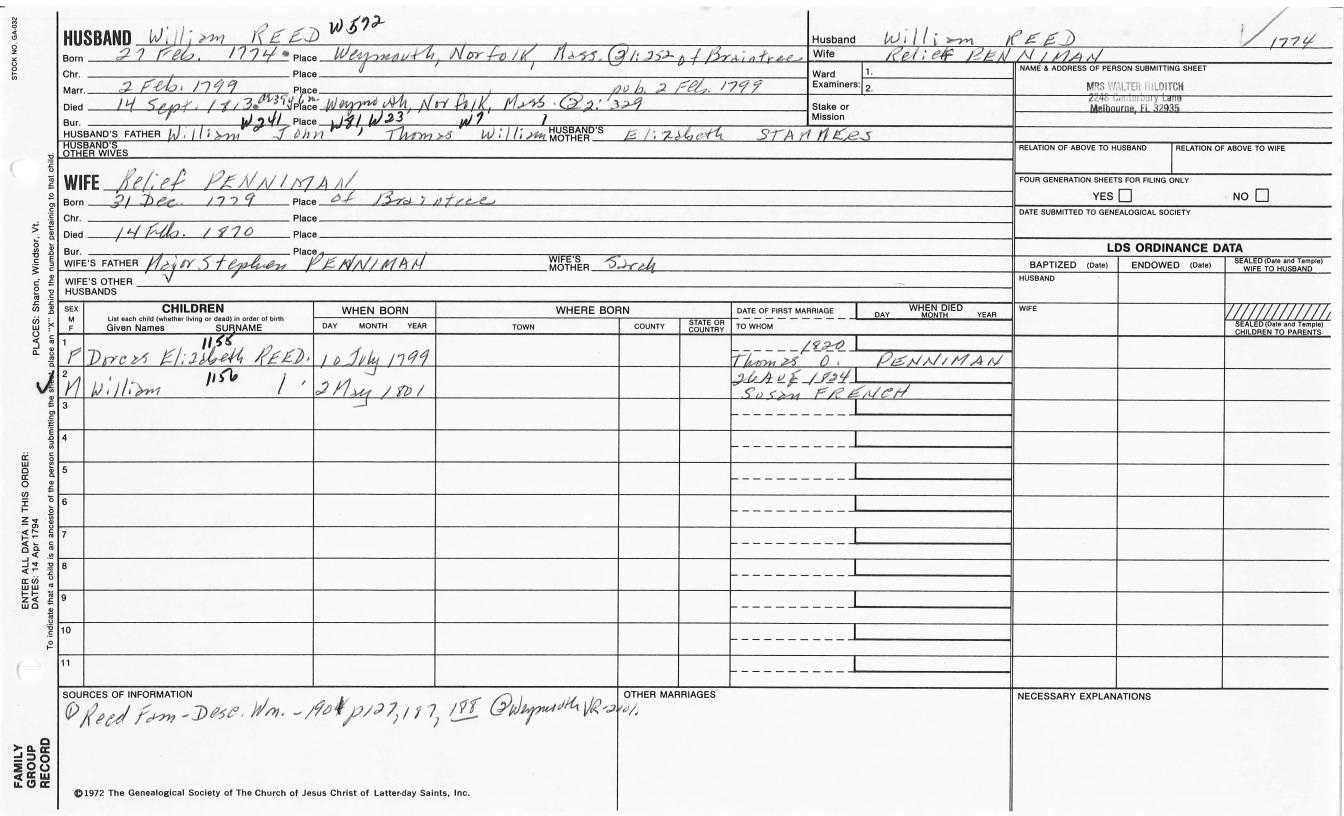 STOCK NO. GA-032
HUSBAND William REED W572
Born 27 Feb. 1774 Place Weymouth, Norfolk, Mass. @1:252 of Braintree
Chr. Place
Marr. 2 Feb. 1799 Place pub. 2 Feb. 1799
Died 14 Sept. 1813 Place Weymouth, Norfolk, Mass. @2:329
Bur. W241 Place W81, W23 W7 1
HUSBAND'S FATHER William John Thomas William HUSBAND'S MOTHER Elizabeth STAMMERS
HUSBAND'S OTHER WIVES
WIFE Relief PENNIMAN
Born 31 Dec. 1779 Place of Braintree
Chr. Place
Died 14 Feb. 1870 Place
Bur. Place
WIFE'S FATHER Major Stephen PENNIMAN WIFE'S MOTHER Sarah
WIFE'S OTHER HUSBANDS
Husband William REED 1774
Wife Relief PENNIMAN
Ward Examiners: 1.
2.
Stake or Mission
NAME & ADDRESS OF PERSON SUBMITTING SHEET
MRS WALTER HILDITCH
2248 Canterbury Lane
Melbourne, FL 32935
RELATION OF ABOVE TO HUSBAND RELATION OF ABOVE TO WIFE
FOUR GENERATION SHEETS FOR FILING ONLY
YES NO
DATE SUBMITTED TO GENEALOGICAL SOCIETY
LDS ORDINANCE DATA
BAPTIZED (Date) ENDOWED (Date) SEALED (Date and Temple) WIFE TO HUSBAND
HUSBAND
WIFE
SEALED (Date and Temple) CHILDREN TO PARENTS
SEX M F
CHILDREN
List each child (whether living or dead) in order of birth
Given Names SURNAME
WHEN BORN
DAY MONTH YEAR
WHERE BORN
TOWN COUNTY STATE OR COUNTRY
DATE OF FIRST MARRIAGE
TO WHOM
WHEN DIED
DAY MONTH YEAR
1 1155 1820
F Dorcas Elizabeth REED. 10 July 1799 Thomas O. PENNIMAN
2 1156 26 Aug 1824
M William 1 2 May 1801 Susan FRENCH
3
4
5
6
7
8
9
10
11
SOURCES OF INFORMATION
① Reed Fam-Desc. Wm. -1901 p127, 187, 188 @Weymouth VR-
OTHER MARRIAGES
NECESSARY EXPLANATIONS
©1972 The Genealogical Society of The Church of Jesus Christ of Latter-day Saints, Inc.
FAMILY GROUP RECORD
ENTER ALL DATA IN THIS ORDER:
DATES: 14 Apr 1794
PLACES: Sharon, Windsor, Vt.
To indicate that a child is an ancestor of the person submitting the sheet, place an "X" behind the number pertaining to that child.